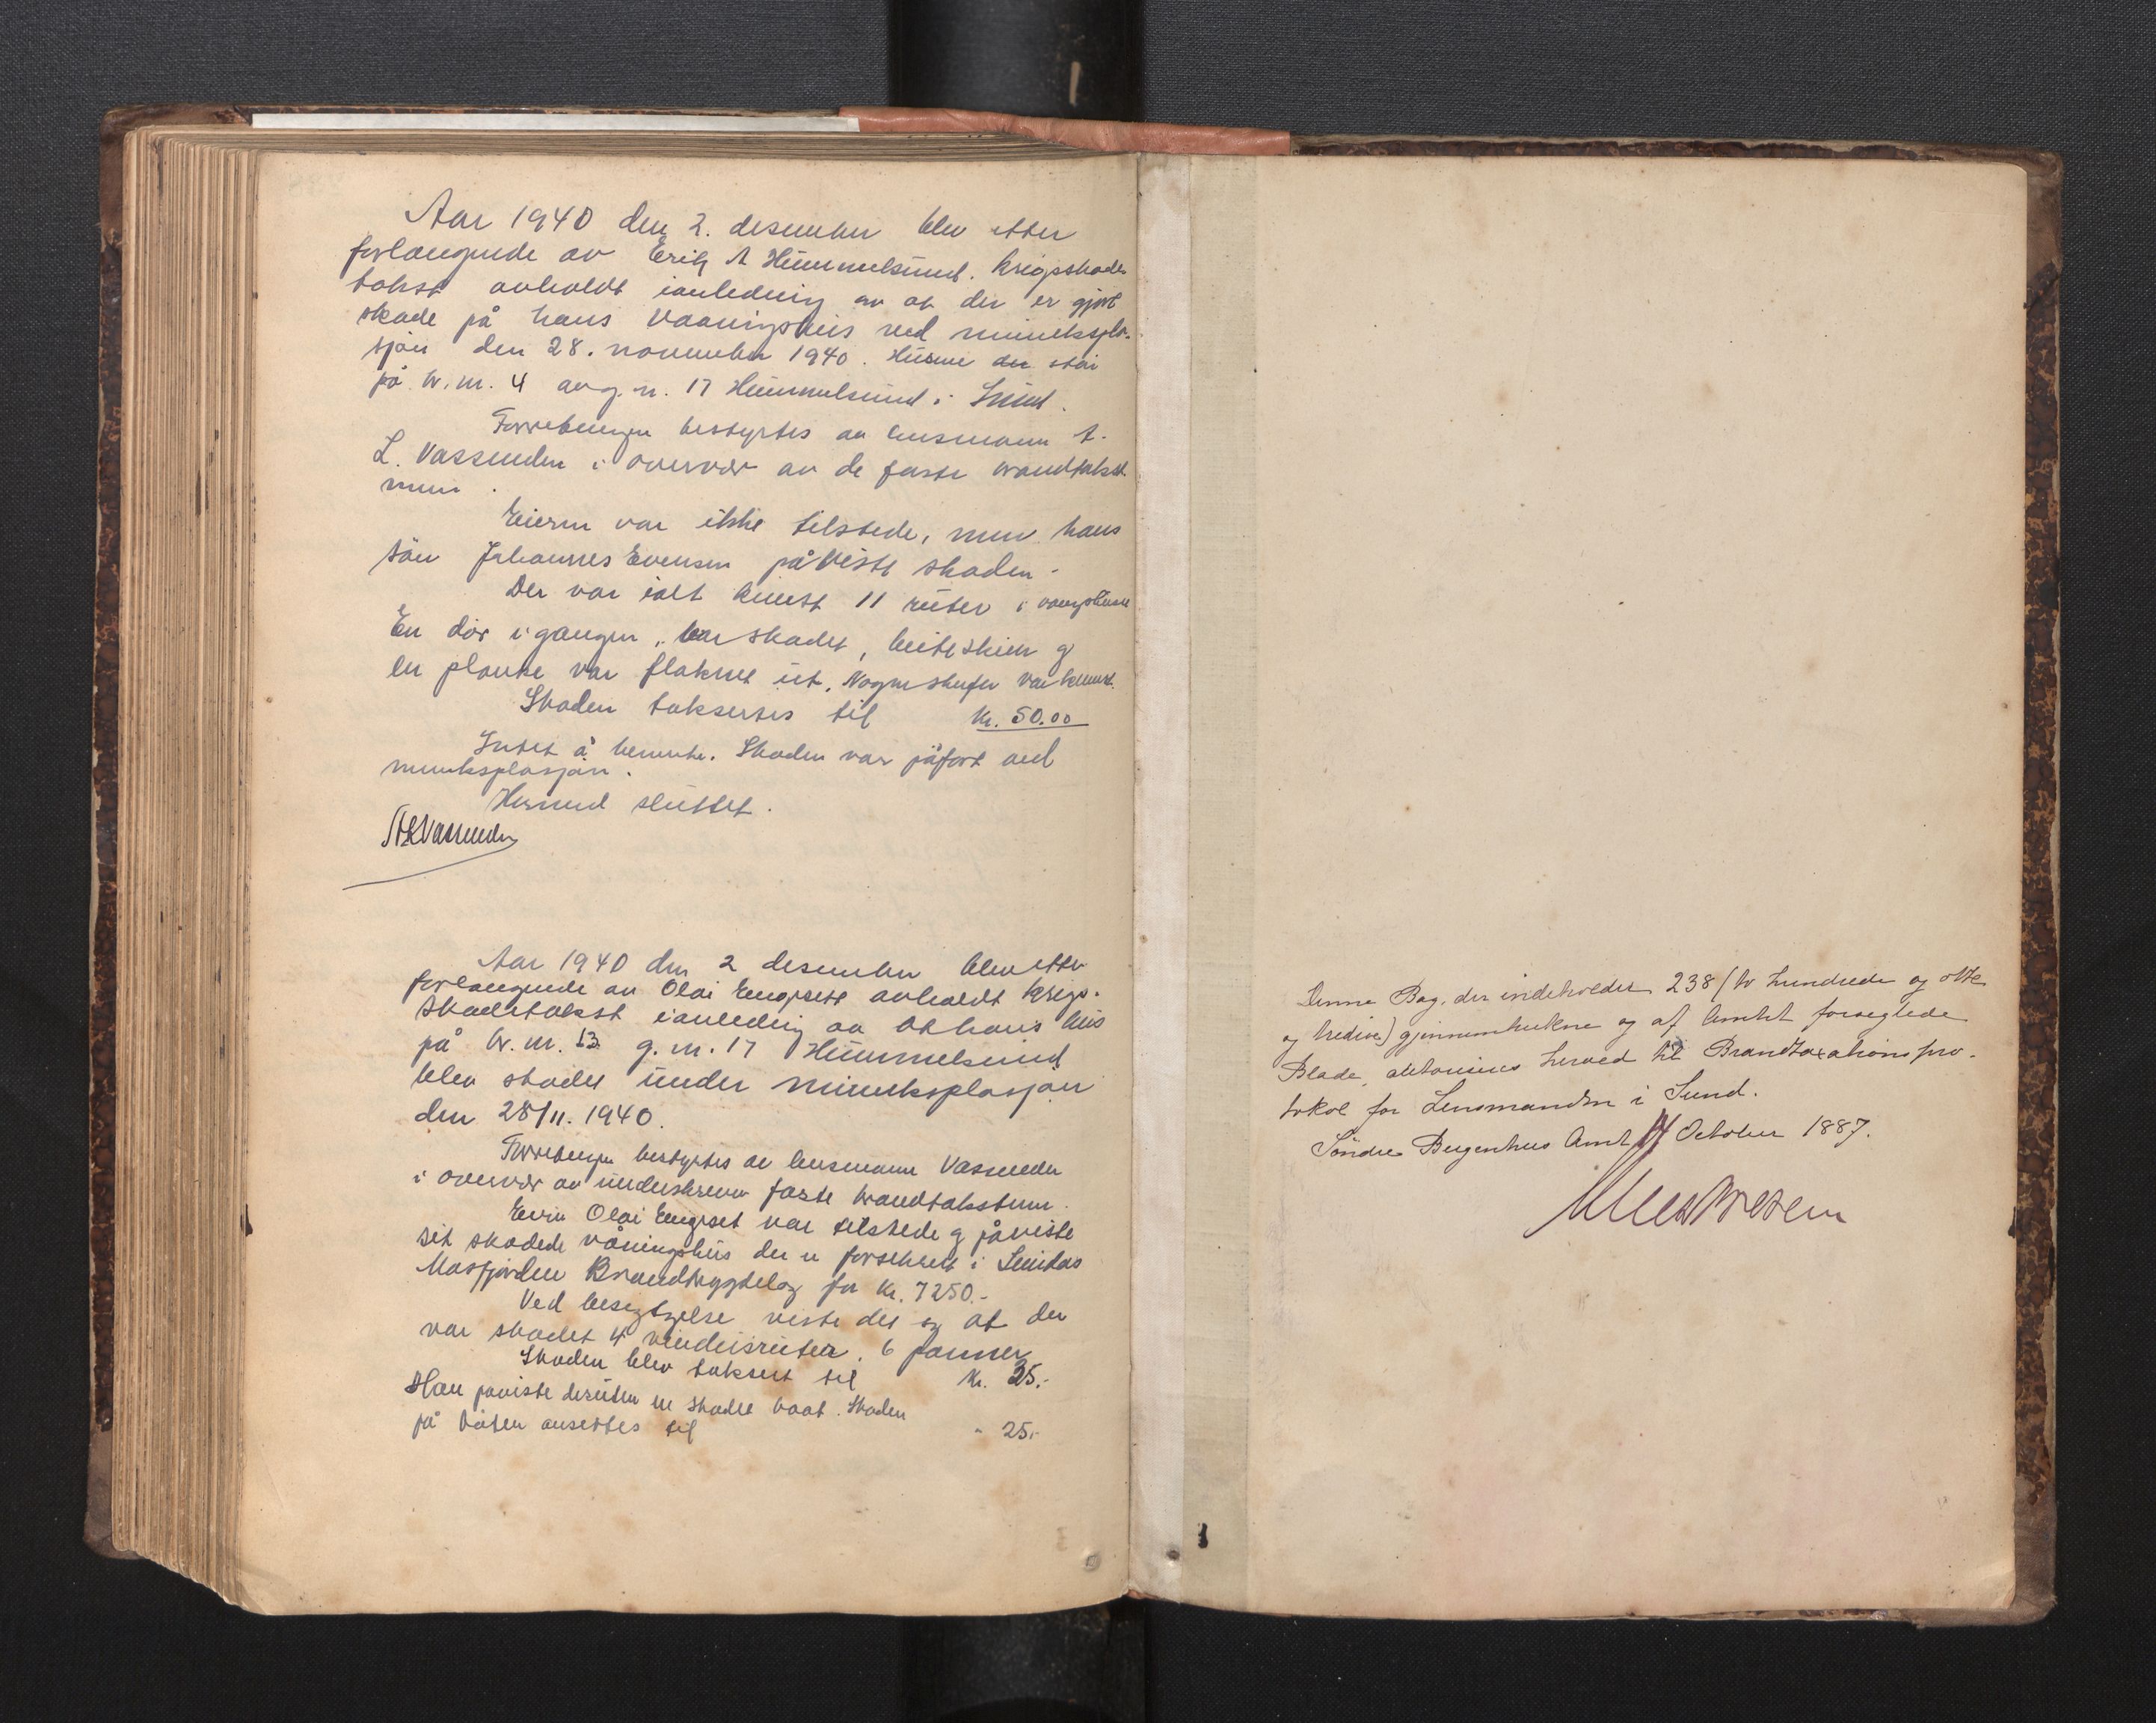 Aar 1940 den 2. desember blev etter
forlangende av Erik A Himmelsund. krigsskade
takst avholdt ianledning av at der er gjort
skade på hans Vaaningshus ved mineksplo-
sjon den 28. november 1940. Husene der står
på br. nr. 4 av g. nr. 17 Himmelsund i Sund.
Forretningen bestyrtes av lensmann A.
L. Vassenden i overvær av de faste brandtakst
menn.
Eieren var ikke tilstede, men hans
sön Johannes Evensen påviste skaden.
Der var ialt knust 11 ruter i
En dör i gangen, var skadet, beiteskien og
en planke var flaknet ut. Nogen skufer var knust.
Skaden taksertes til Kr. 50.00
Intet å bemerke. Skaden var påfört ved
mineksplosjön.
Hermed sluttet.
A L Vassenden
Aar 1940 den 2 desember blev etter
forlangende av Olai Engeset avholdt krigs-
skadetakst ianledning av at hans hus
på br. nr. 13 g. nr. 17 Himmelsund
blev skadet under mineksplosjon
den 28/11. 1940.
Forretningen bestyrtes av lensmann Vassenden
i overvær av underskrevne faste brandtakstmenn.
Eieren Olai Engeset var tilstede og påviste
sit skadede våningshus der er forsikret i Lindaas
Masfjorden Brandtrygdelag for Kr. 7250.-
Ved besigtigelse viste det sig at der
var skadet 4 vindusruter. 6 panner
Skaden blev taksert til Kr. 35.-
Han paaviste desuten en skadet baat. Skaden
på båten ansettes til " 25.-
Denne Bog, der indeholder 238 (to hundrede og otte
og tredive) gjennemtrukne og af Amtet forseglede
Blade, autoriseres herved til Brandtaxationspro-
tokol for Lensmanden i Sund.
Söndre Bergenhus Amt 14 October 1887.